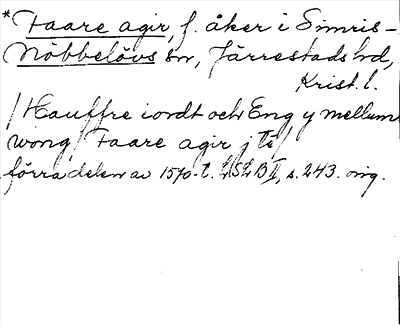 * Faare agir, f. åker i Simris-
Nöbbelövs sn, Järrestads hd,
Krist. l.
/ Hauffre iordt och Eng y mellum
wong / Faare agir j ti /
förra delen av 1570-t. LSLB II, s. 243. orig.